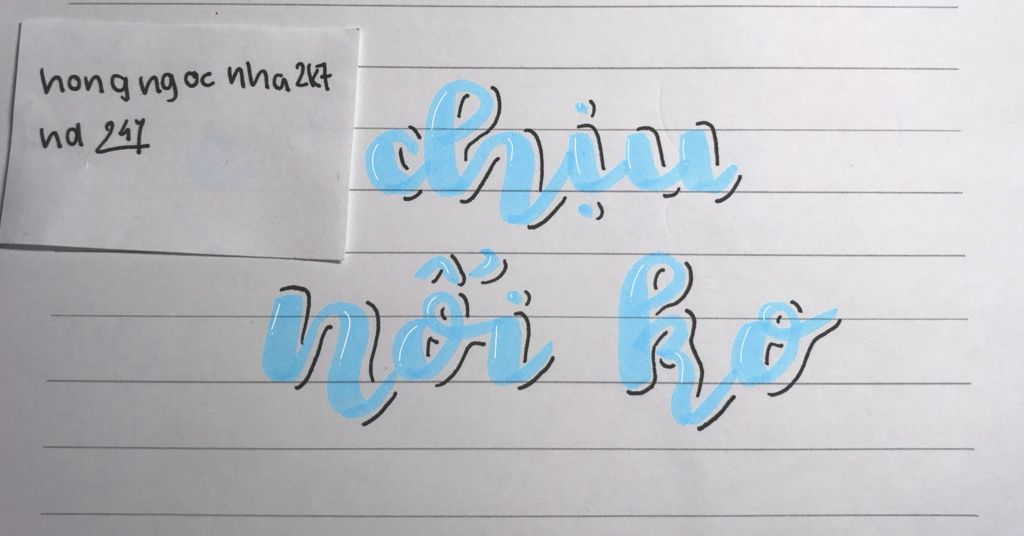 hongngoc nha2k7
nd 247
chịu
nối ko